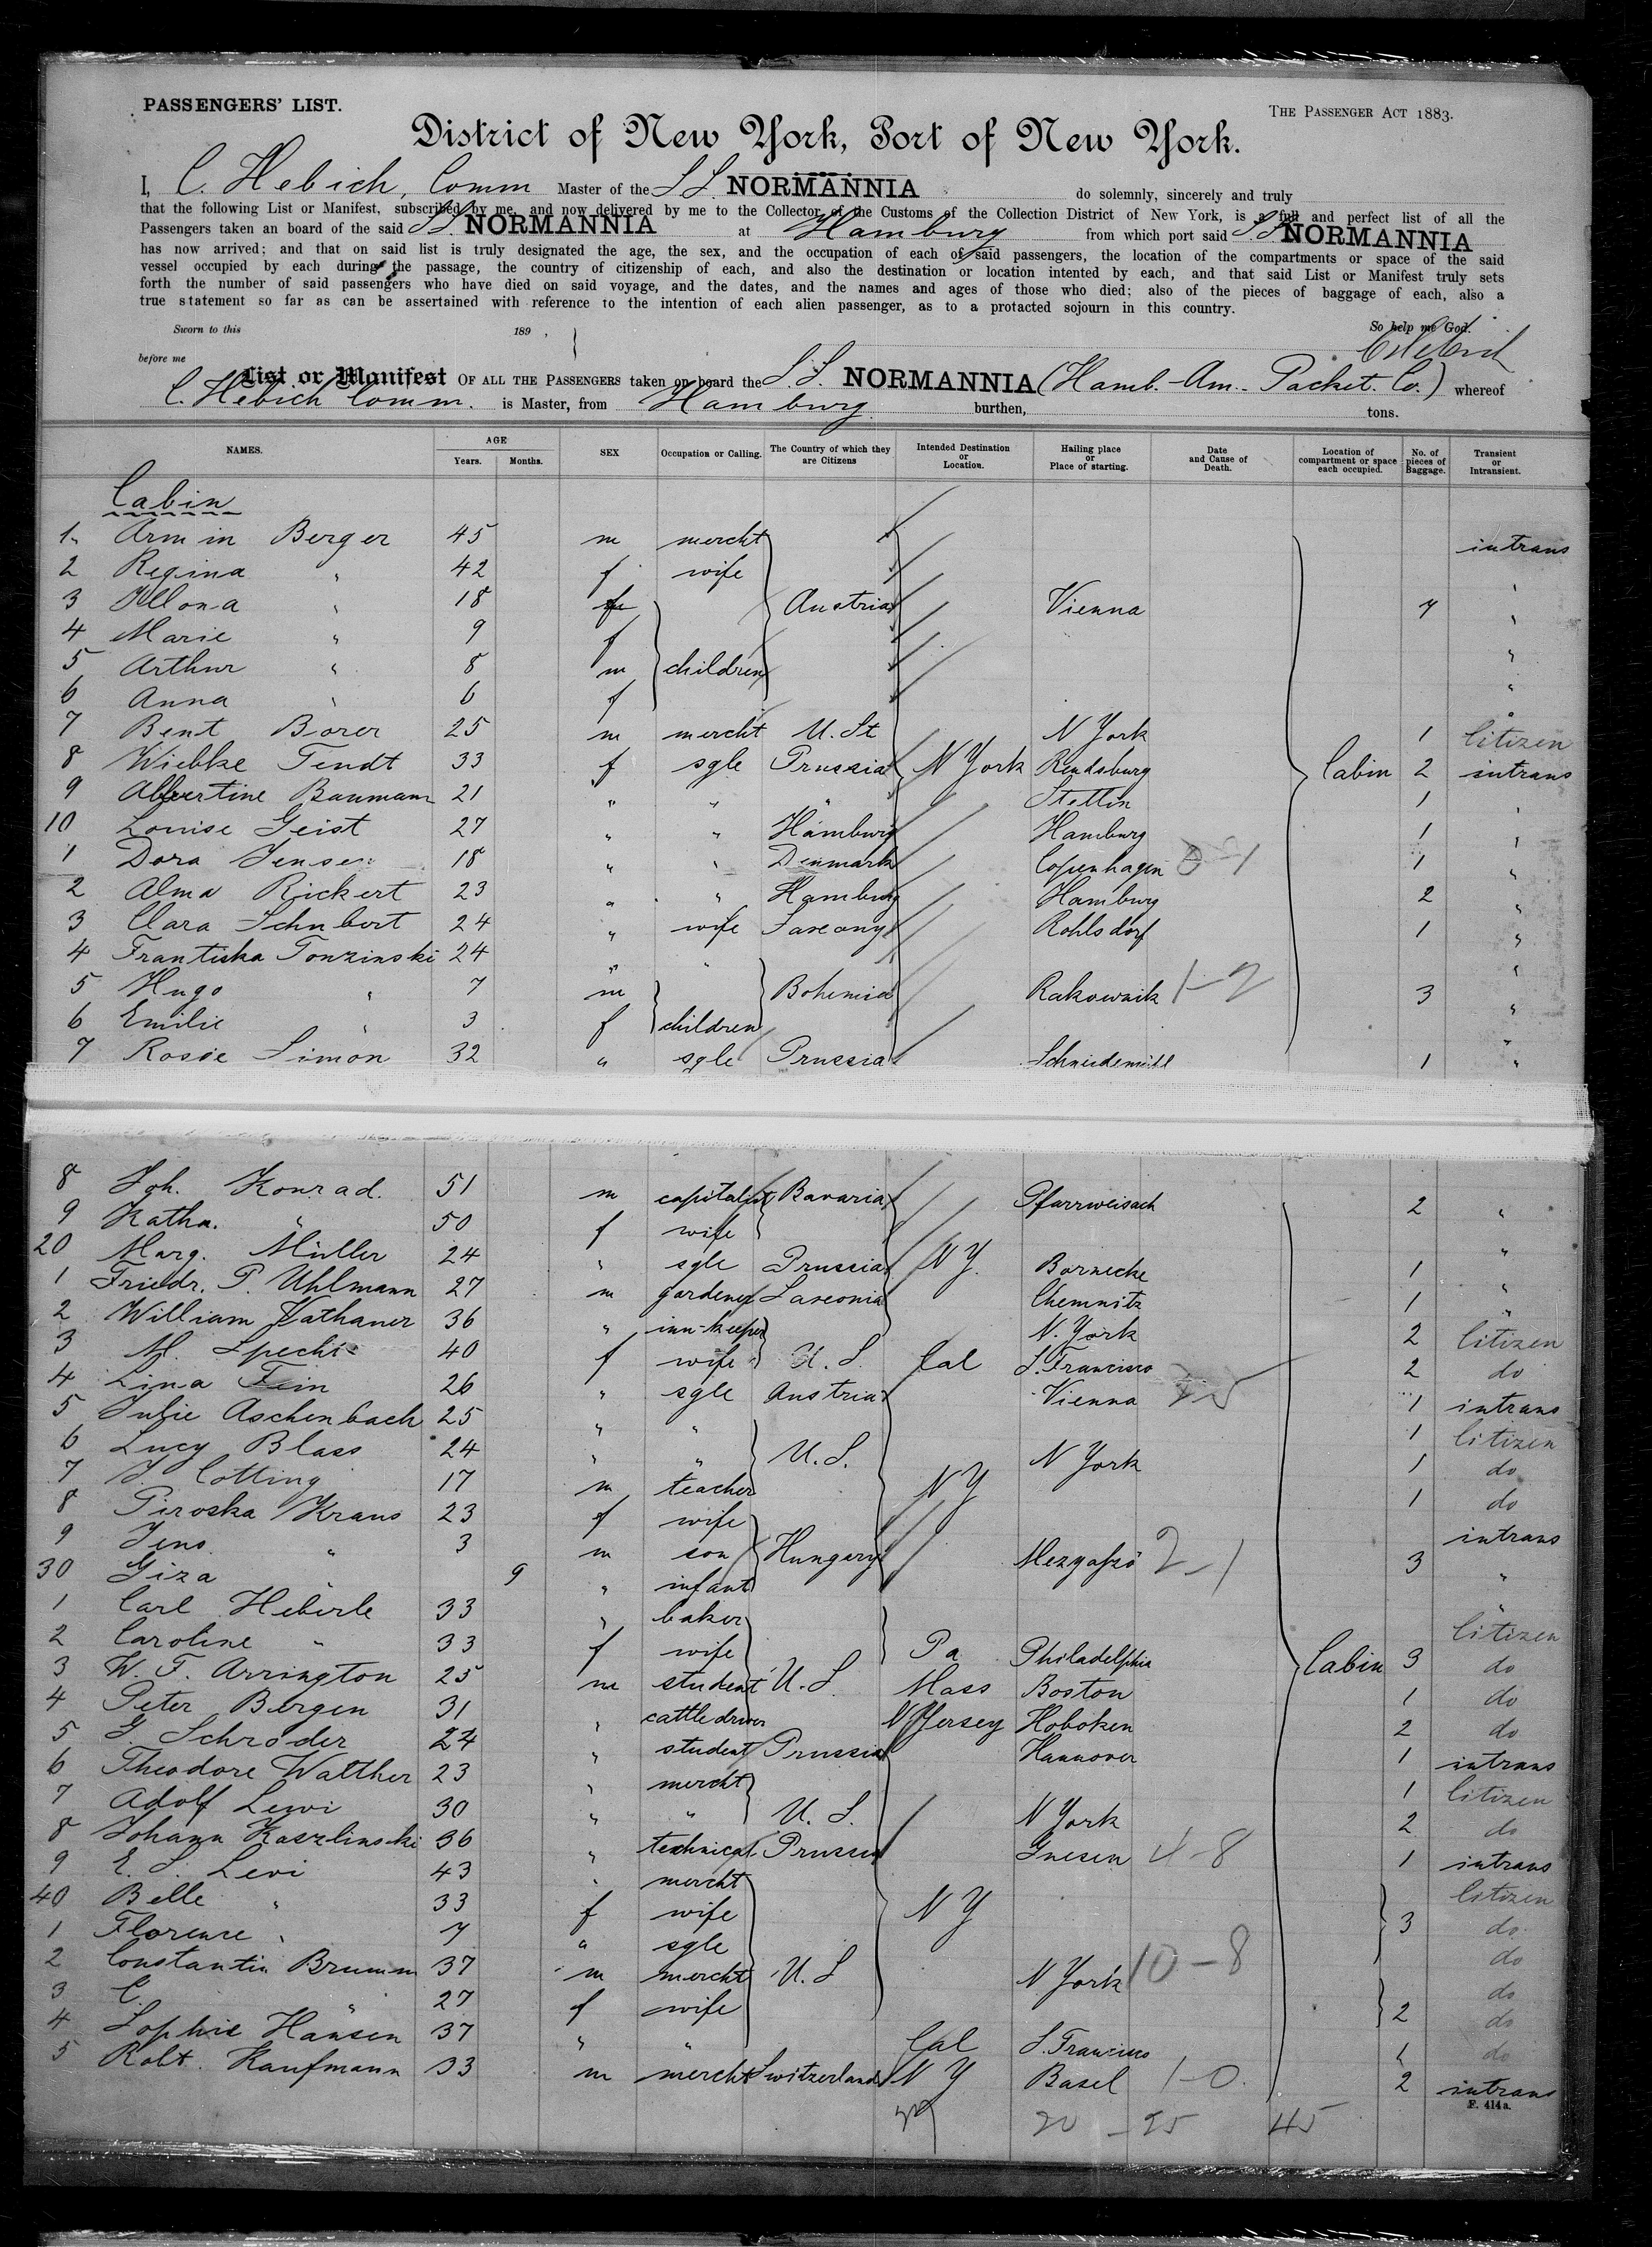 PASSENGERS' LIST.
THE PASSENGER ACT 1883.
District of New York, Port of New York.
I, C. Hebich, Comm Master of the S.S. NORMANNIA do solemnly, sincerely and truly
that the following List or Manifest, subscribed by me, and now delivered by me to the Collector of the Customs of the Collection District of New York, is a full and perfect list of all the
Passengers taken an board of the said S.S. NORMANNIA at Hamburg from which port said S.S. NORMANNIA
has now arrived; and that on said list is truly designated the age, the sex, and the occupation of each of said passengers, the location of the compartments or space of the said
vessel occupied by each during the passage, the country of citizenship of each, and also the destination or location intented by each, and that said List or Manifest truly sets
forth the number of said passengers who have died on said voyage, and the dates, and the names and ages of those who died; also of the pieces of baggage of each, also a
true statement so far as can be assertained with reference to the intention of each alien passenger, as to a protacted sojourn in this country.
Sworn to this 189 , So help me God.
before me
List or Manifest OF ALL THE PASSENGERS taken on board the S.S. NORMANNIA (Hamb.-Am.- Packet. Co.) whereof
C. Hebich Comm. is Master, from Hamburg burthen, tons.
NAMES. AGE Years. Months. SEX Occupation or Calling. The Country of which they are Citizens Intended Destination or Location. Hailing place or Place of starting. Date and Cause of Death. Location of compartment or space each occupied. No. of pieces of Baggage. Transient or Intransient.
Cabin
1. Armin Berger 45 m mercht intrans
2 Regina " 42 f wife "
3 Illona " 18 f Austria Vienna 7 "
4 Marie " 9 f "
5 Arthur " 8 m children "
6 Anna " 6 f "
7 Bent Borer 25 m mercht U. St N York 1 Citizen
8 Wiebke Tendt 33 f sgle Prussia N York Rendsburg Cabin 2 intrans
9 Albertine Baumann 21 " " " Stettin 1 "
10 Louise Geist 27 " " Hamburg Hamburg 1 "
1 Dora Jensen 18 " " Denmark Copenhagen 1 "
2 Alma Rickert 23 " " Hamburg Hamburg 2 "
3 Clara Schubert 24 " wife Saxony Rohlsdorf 1 "
4 Frantiska Tonzinski 24 " " "
5 Hugo " 7 m Bohemia Rakownik 1-2 3 "
6 Emilie " 3 f children "
7 Rosie Simon 32 " sgle Prussia Schneidemühl 1 "
8 Joh. Konrad. 51 m capitalist Bavaria Pfarrweisach 2 "
9 Katha. " 50 f wife "
20 Marg. Müller 24 " sgle Prussia N Y. Bornecke 1 "
1 Friedr. P. Uhlmann 27 m gardener Saxonia Chemnitz 1 "
2 William Vathauer 36 " inn-keeper N. York 2 Citizen
3 M. Specht 40 f wife U. S. Cal S. Francisco 2 do
4 Lina Fein 26 " sgle Austria Vienna 1 intrans
5 Julie Aschenbach 25 " " 1 Citizen
6 Lucy Blass 24 " " U. S. N York 1 do
7 J. Cotting 17 m teacher N Y 1 do
8 Piroska Kraus 23 f wife intrans
9 Jeno " 3 m son Hungary 2-1 3 "
30 Giza " 9 " infant "
1 Carl Heberle 33 " baker Citizen
2 Caroline " 33 f wife Pa Philadelphia Cabin 3 do
3 W. F. Arrington 25 m student U. S. Mass Boston 1 do
4 Peter Bergen 31 " cattle driver N Jersey Hoboken 2 do
5 G. Schröder 24 " student Prussia Hannover 1 intrans
6 Theodore Walther 23 " mercht 1 Citizen
7 Adolf Lewi 30 " " U. S. N York 2 do
8 Johann Kaszlinski 36 " technical Prussia Gnesen 4-8 1 intrans
9 E. S. Levi 43 " mercht Citizen
40 Belle " 33 f wife N Y 3 do
1 Florence " 7 " sgle do
2 Constantin Brumm 37 m mercht U. S N York 10-8 do
3 C. " 27 f wife 2 do
4 Sophie Hansen 37 " " Cal S. Francisco 1 do
5 Robt. Kaufmann 33 m mercht Switzerland N Y Basel 1-0. 2 intrans
F. 414a.
20 - 25 45